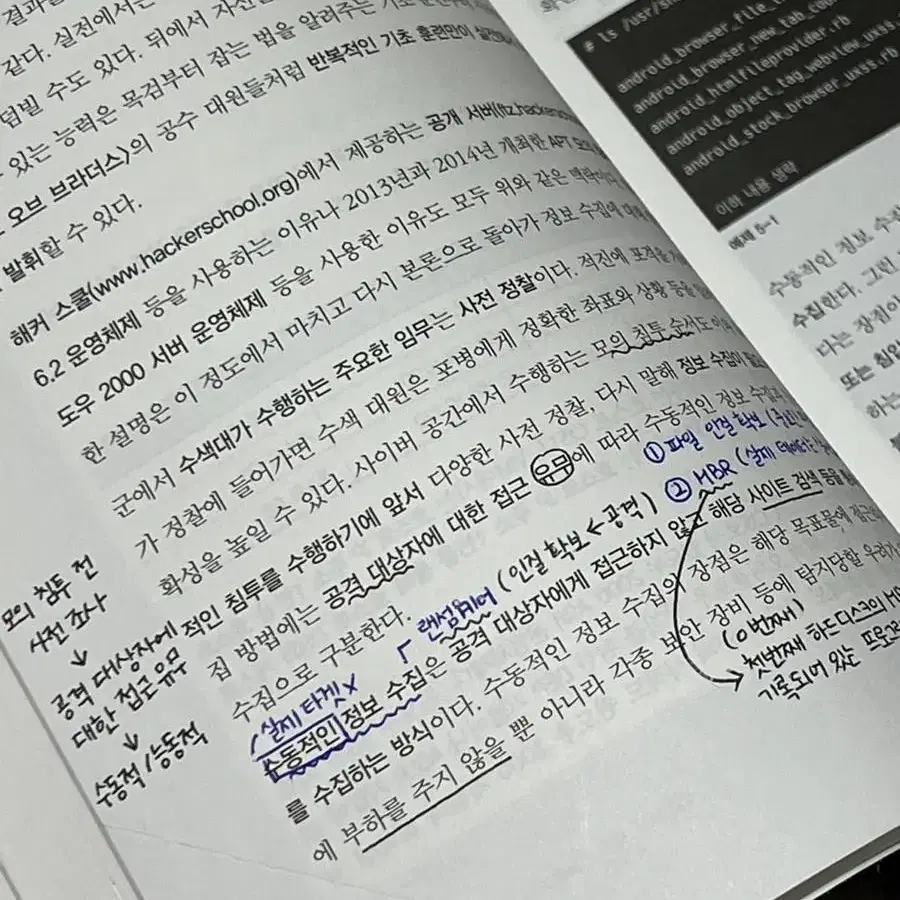 결과를
같다. 실전에서는
덤빌 수도 있다. 뒤에서 자신을
있는 능력은 목검부터 잡는 법을 알려주는 기초
오브 브라더스>의 공수 대원들처럼 반복적인 기초 훈련만이
발휘할 수 있다.
해커 스쿨(www.hackerschool.org)에서 제공하는 공개 서버(ftz.hackerschool
6.2 운영체제 등을 사용하는 이유나 2013년과 2014년 개최한 APT
도우 2000 서버 운영체제 등을 사용한 이유도 모두 위와 같은 맥락이다.
한 설명은 이 정도에서 마치고 다시 본론으로 돌아가 정보 수집에 대해
군에서 수색대가 수행하는 주요한 임무는 사전 정찰이다. 적진에 포격을
가 정찰에 들어가면 수색 대원은 포병에게 정확한 좌표와 상황 등을
확성을 높일 수 있다. 사이버 공간에서 수행하는 모의 침투 순서도
적인 침투를 수행하기에 앞서 다양한 사전 정찰, 다시 말해 정보 수집이
집 방법에는 공격 대상자에 대한 접근 유무에 따라 수동적인 정보 수집과
수집으로 구분한다.
수동적인 정보 수집은 공격 대상자에게 접근하지 않고 해당 사이트 검색 등을
를 수집하는 방식이다. 수동적인 정보 수집의 장점은 해당 목표물에
에 부하를 주지 않을 뿐 아니라 각종 보안 장비 등에 탐지당할 우려가
모의 침투 전
사전 조사
↓
공격 대상자에
대한 접근 유무
↓
수동적/능동적
실제 타겟 x
랜섬웨어 (인질 확보 ← 공격)
① 파일 인질 확보
② MBR (실제 데이터는
(0번째)
첫번째 하드디스크의
기록되어 있는 프로그
# ls /usr/
android_browser_file_
android_browser_new_tab_
android_htmlfileprovider.rb
android_object_tag_webview_uxss.
android_stock_browser_uxss.rb
이하 내용 생략
예제 5-1
수동적인 정보 수집
수집한다. 그런
다는 장점이
또는 침입
하는